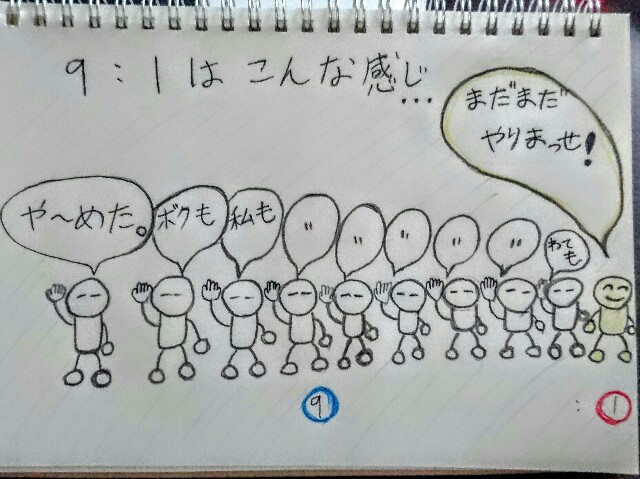 9:1は こんな感じ...
まだまだ
やりまっせ!
や〜めた。
ボクも
私も
〃
〃
〃
〃
〃
わても
9
:
1